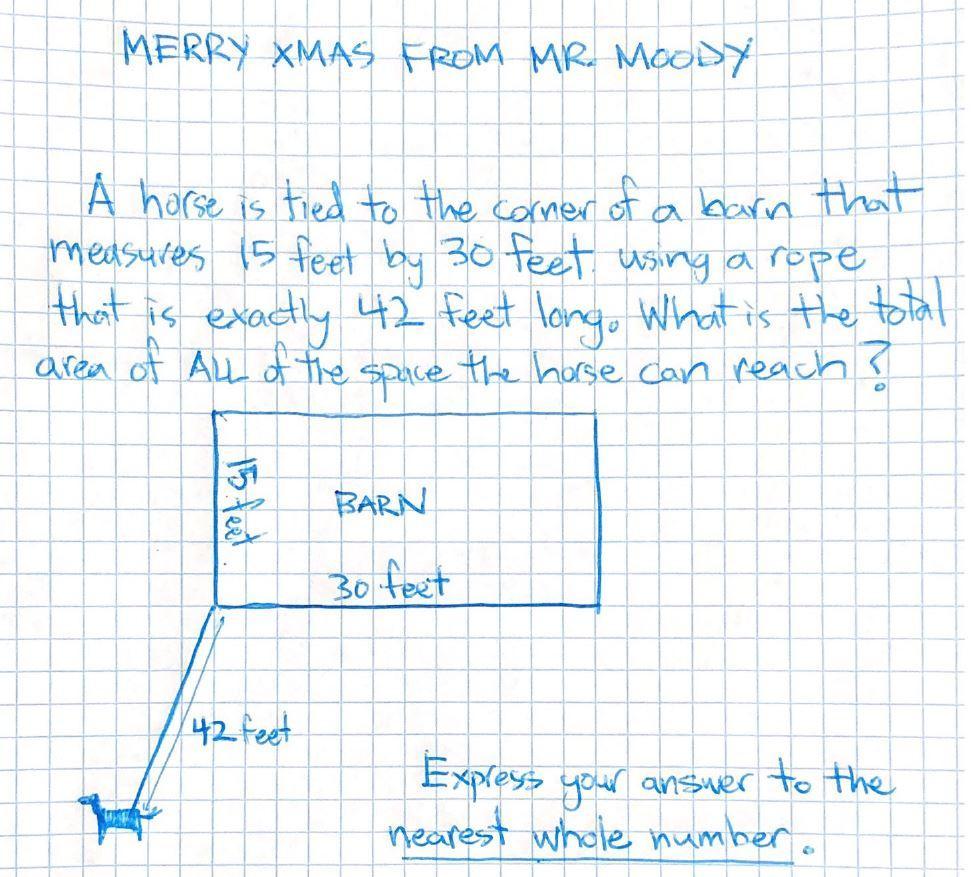 MERRY XMAS FROM MR. MOODY
A horse is tied to the corner of a barn that
measures 15 feet by 30 feet. using a rope
that is exactly 42 feet long. What is the total
area of ALL of the space the horse can reach?
15 feet
BARN
30 feet
42 feet
Express your answer to the
nearest whole number.